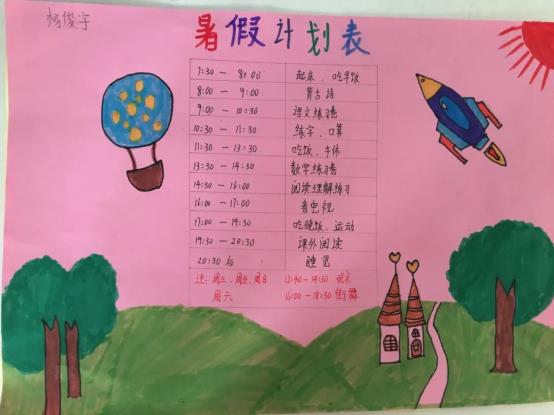 杨俊宇
暑假计划表
7:30 — 8:00 起床、吃早饭
8:00 — 9:00 背古诗
9:00 — 10:30 语文练习卷
10:30 — 11:30 练字、口算
11:30 — 13:30 吃饭、午休
13:30 — 14:30 数学练习卷
14:30 — 16:00 阅读理解练习
16:00 — 17:00 看电视
17:00 — 19:30 吃晚饭、运动
19:30 — 20:30 课外阅读
20:30 后 睡觉
注: 周三、周五、周日 12:40 — 14:30 武术
周六 16:00 — 18:30 街舞